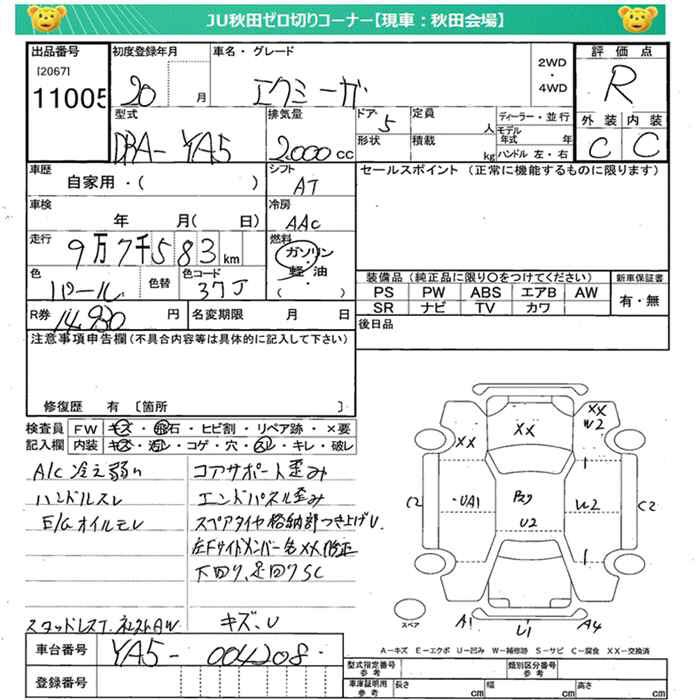 JU秋田ゼロ切りコーナー【現車：秋田会場】
出品番号 初度登録年月 車名・グレード 2WD・4WD 評価点
[2067]
11005 20 月 エクシーガ R
型式 排気量 ドア 5 定員 人 ディーラー・並行 外装 内装
DBA-YA5 2000cc 形状 積載 kg モデル年式 年 C C
ハンドル 左・右
車歴 シフト セールスポイント（正常に機能するものに限ります）
自家用・( ) AT
車検 冷房
年 月( 日) AAC
走行 燃料
9万7千583km ガソリン・軽油
色 色替 色コード ( )
パール 37J
装備品（純正品に限り○をつけてください） 新車保証書
PS PW ABS エアB AW 有・無
SR ナビ TV カワ
R券 14,930円 名変期限 月 日 後日品
注意事項申告欄(不具合内容等は具体的に記入して下さい)
修復歴 有 〔箇所 〕
検査員 FW キズ・飛石・ヒビ割・リペア跡・×要
記入欄 内装 キズ・汚レ・コゲ・穴・スレ・キレ・破レ
A/C 冷え弱い コアサポート歪み
ハンドルスレ エンドパネル歪み
E/Gオイルモレ スペアタイヤ格納部つき上げU.
左Fサイドメンバー 修正
下回り、足回りSC
スタッドレスT. AW キズ、U
XX XX XX W2
C2 UA1 U2 W2 C2
スペア A1 U1 A4
A－キズ E－エクボ U－凹み W－補修跡 S－サビ C－腐食 XX－交換済
車台番号 YA5-004208
登録番号
型式指定番号 参考 類別区分番号 参考
車庫証明用 参考 長さ cm 幅 cm 高さ cm